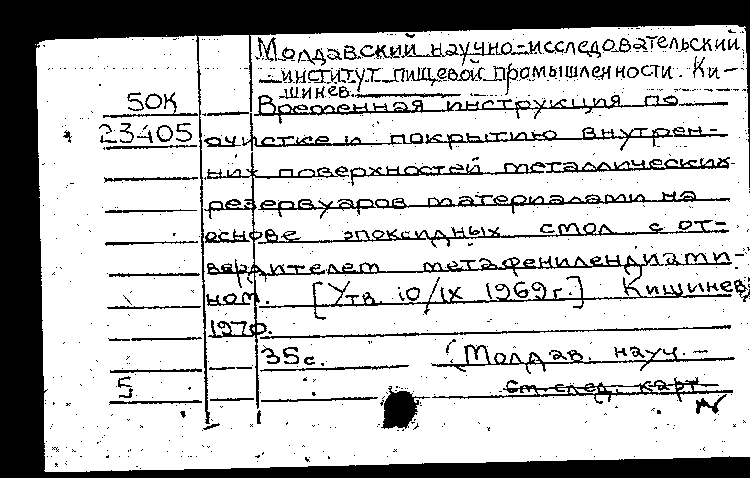 Молдавский научно-исследовательский
институт пищевой промышленности. Ки-
шинев.
50К
Временная инструкция по
23405
очистке и покрытию внутрен-
них поверхностей металлических
резервуаров материалами на
основе эпоксидных смол с от-
вердителем метафенилендиами-
ном. [Утв. 10/IX 1969г.] Кишинев,
1970.
35с. (Молдав. науч.-
5
см. след. карт.